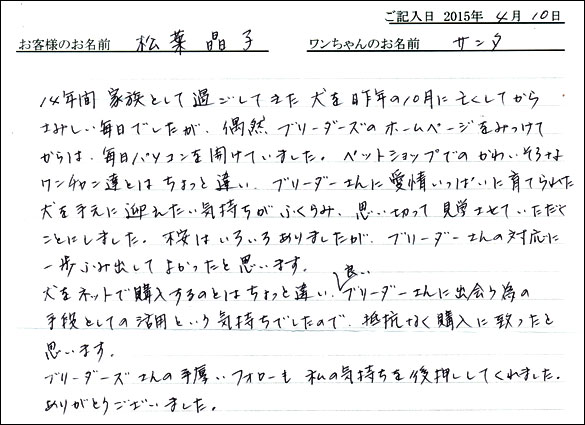 ご記入日 2015年 4月 10日
お客様のお名前 松葉 晶子 ワンちゃんのお名前 サンタ
14年間 家族として 過ごしてきた 犬を 昨年の10月に亡くしてから
さみしい毎日でしたが、偶然 ブリーダーズの ホームページをみつけて
からは、毎日パソコンを開けていました。ペットショップでの かわいそうな
ワンチャン達とは ちょっと違い、ブリーダーさんに 愛情いっぱいに育てられた
犬を手元に 迎えたい気持ちが ふくらみ、思い切って 見学させていただく
ことにしました。不安は いろいろありましたが、ブリーダーさんの対応に
一歩ふみ出して よかったと思います。
犬をネットで購入するのとは ちょっと違い、良いブリーダーさんに 出会う為の
手段としての活用という気持ちでしたので、抵抗なく購入に致ったと
思います。
ブリーダーズさんの手厚いフォローも 私の気持ちを後押ししてくれました。
ありがとうございました。